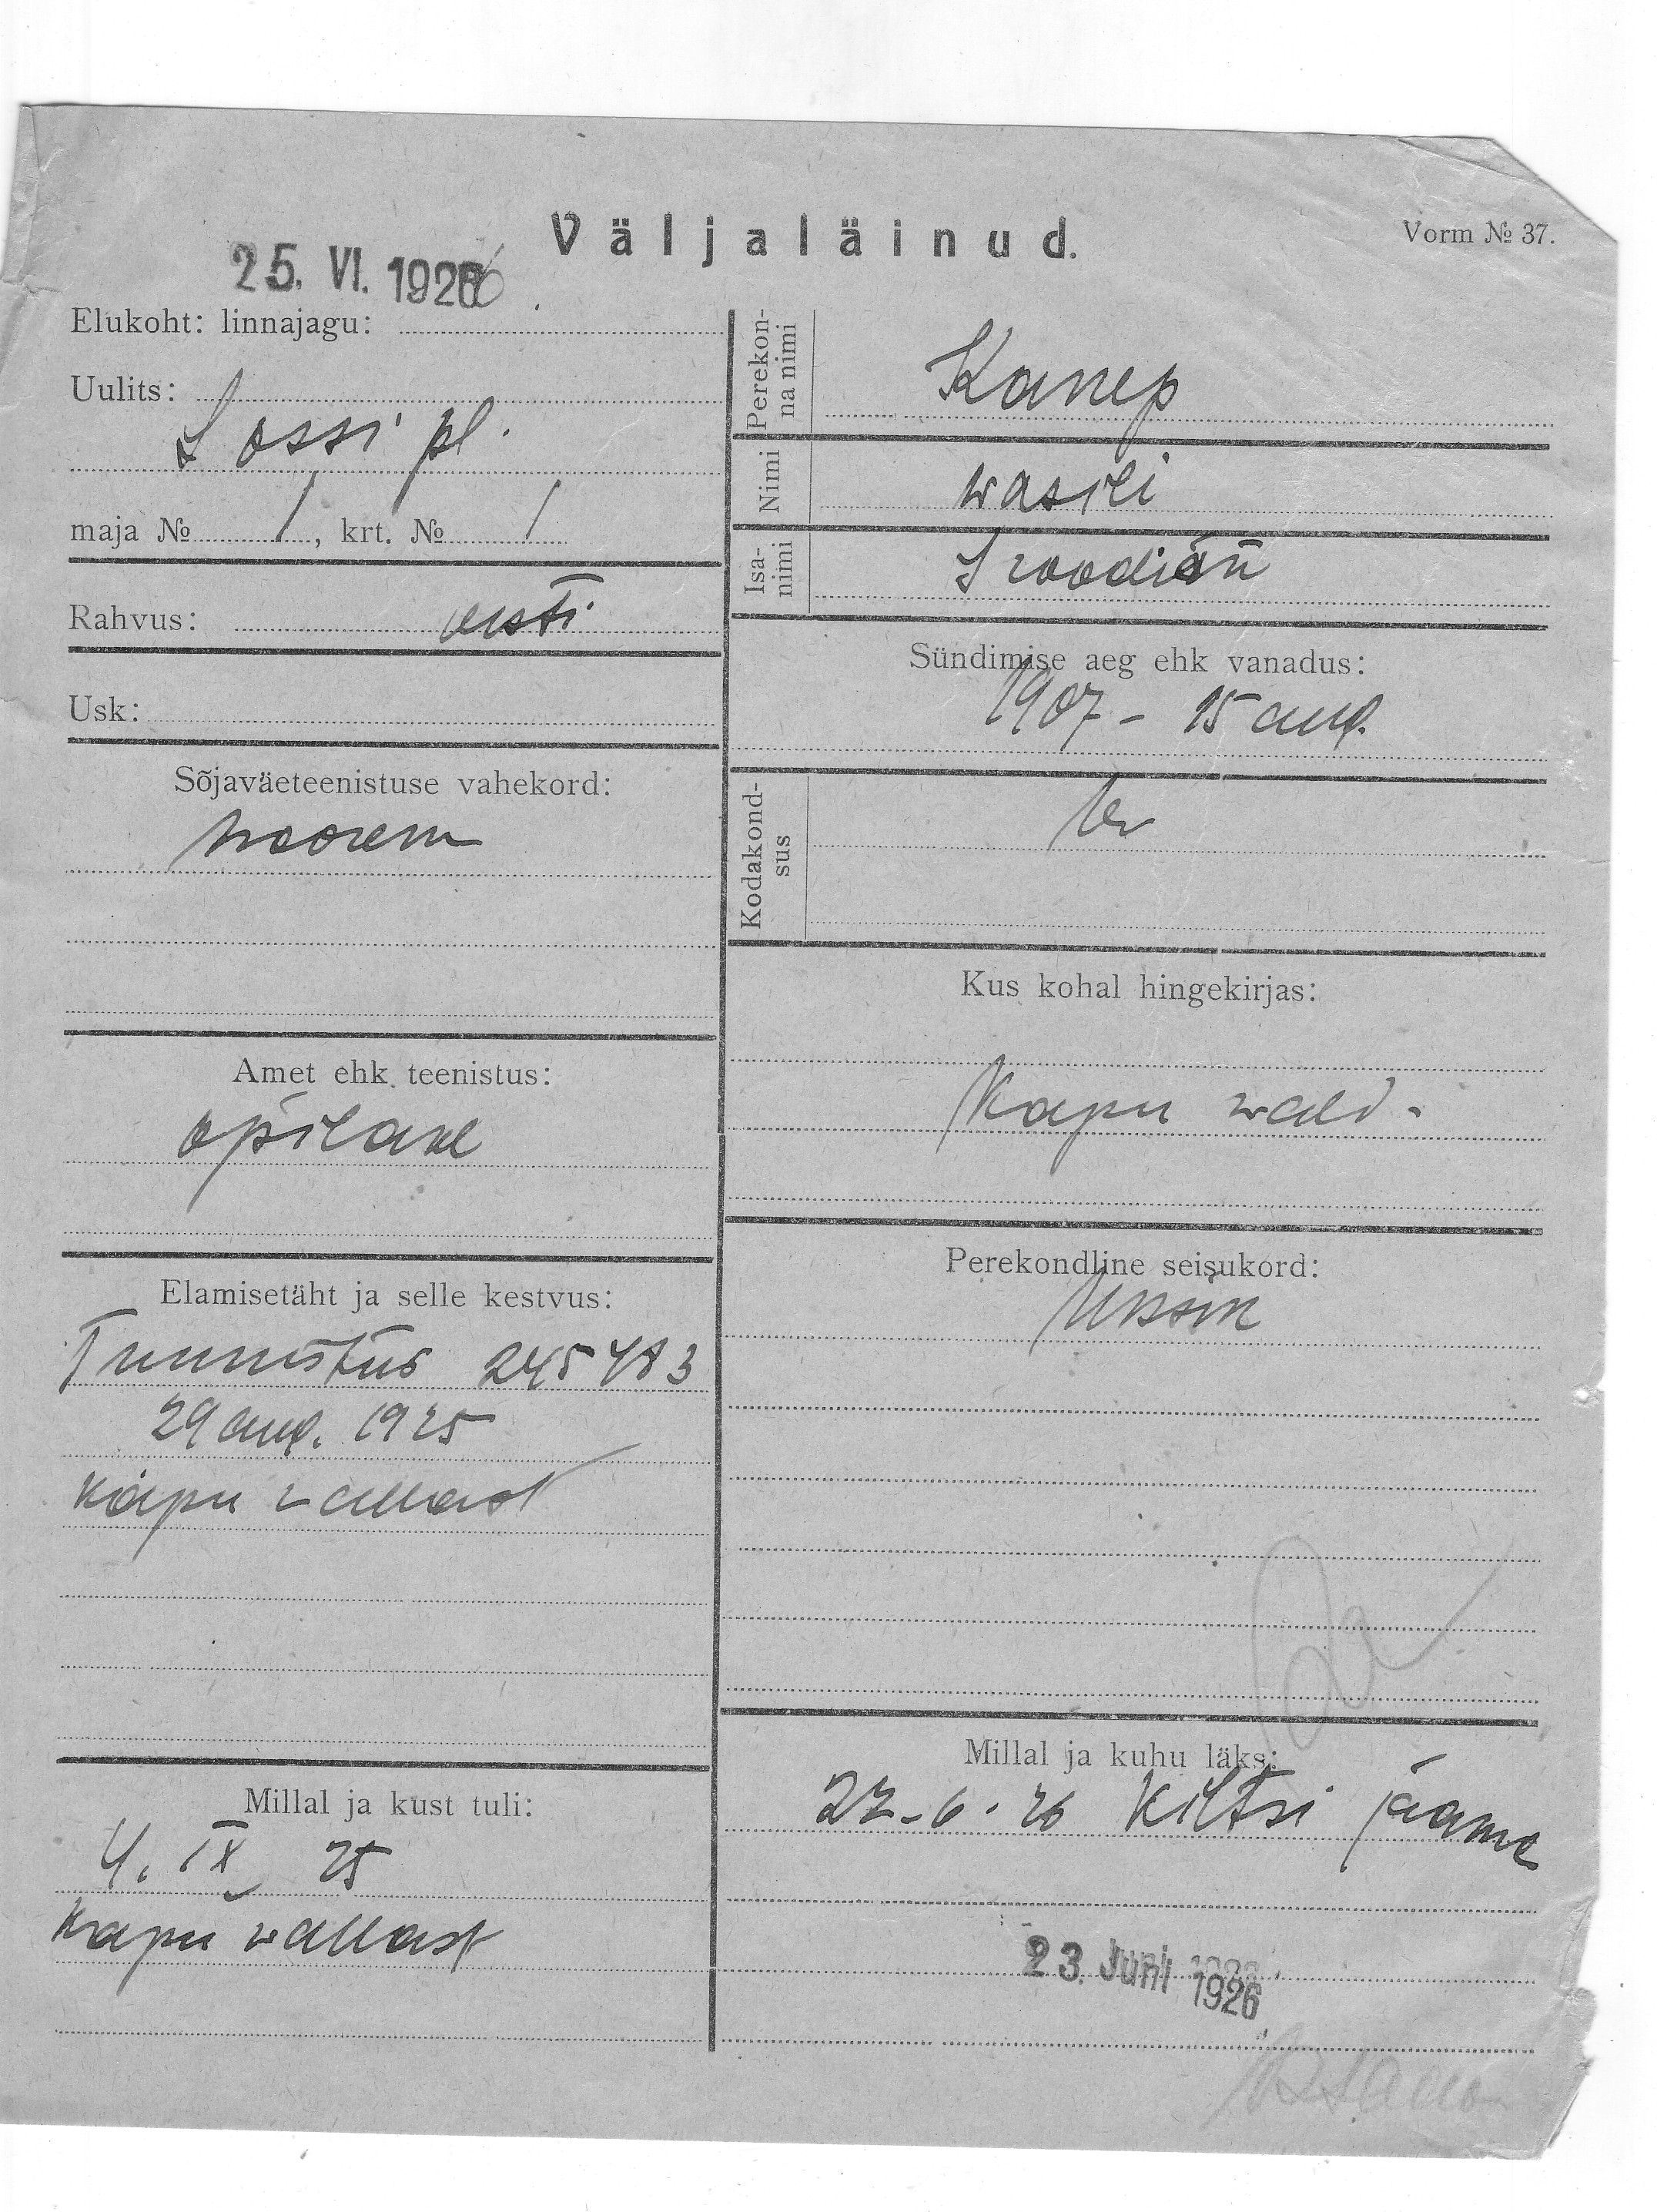 Väljaläinud.
Vorm № 37.
25. VI. 1926
Elukoht: linnajagu:
Uulits:
Lossi pl.
maja № 1, krt. № 1
Rahvus: eesti
Usk:
Sõjaväeteenistuse vahekord:
noorem
Amet ehk teenistus:
õpilane
Elamisetäht ja selle kestvus:
Tunnistus 245483
29 aug. 1925
Kapu vallast
Millal ja kust tuli:
4. IX 25
Kapu wallast
Perekon-
na nimi
Kanep
Nimi
Wasili
Isa-
nimi
Irodion
Sündimise aeg ehk vanadus:
1907 - 15 aug.
Kodakond-
sus
Kus kohal hingekirjas:
Kapu wald.
Perekondline seisukord:
Millal ja kuhu läks:
22-6-26 Kiltsi jaama
23. Juni 1926